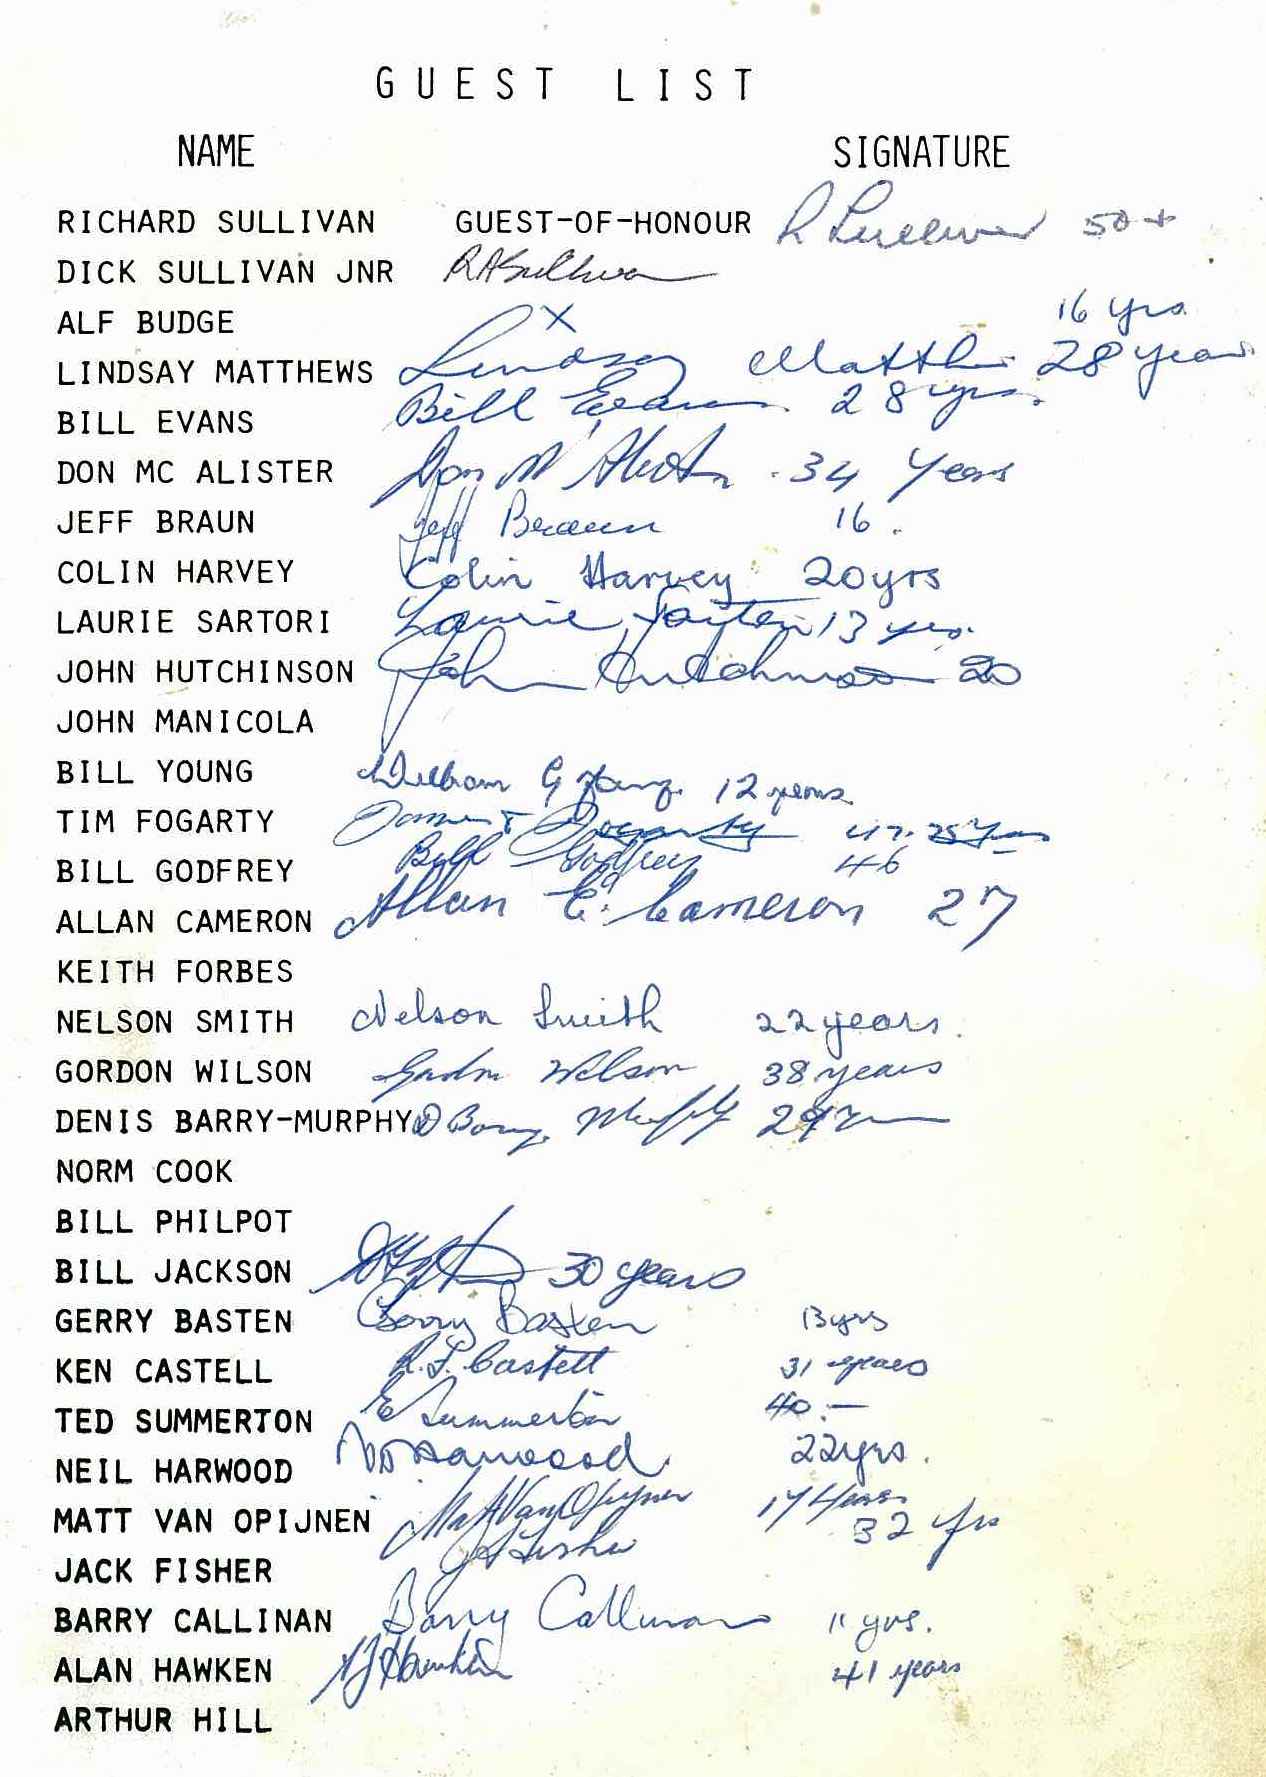 GUEST LIST
NAME SIGNATURE
RICHARD SULLIVAN GUEST-OF-HONOUR R Sullivan 50+
DICK SULLIVAN JNR RASullivan
ALF BUDGE X 16 yrs.
LINDSAY MATTHEWS Lindsay Matth 28 years
BILL EVANS Bill Evans. 28 yrs.
DON MC ALISTER Don Mc 34 Years
JEFF BRAUN Jeff Braun 16.
COLIN HARVEY Colin Harvey 20yrs
LAURIE SARTORI Laurie 13 yrs.
JOHN HUTCHINSON John Hutchinson 20
JOHN MANICOLA
BILL YOUNG William G Young. 12 years
TIM FOGARTY James T Fogarty 47.
BILL GODFREY Bill Godfrey 46
ALLAN CAMERON Allan C. Cameron 27
KEITH FORBES
NELSON SMITH Nelson Smith 22 years.
GORDON WILSON Gordon Wilson 38 years
DENIS BARRY-MURPHY D Barry Murphy
NORM COOK
BILL PHILPOT
BILL JACKSON 30 years
GERRY BASTEN Gerry Basten 13yrs
KEN CASTELL Castell 31 years
TED SUMMERTON E Summerton 40.—
NEIL HARWOOD Harwood 22yrs.
MATT VAN OPIJNEN Matt Van Opijnen 17 Years
JACK FISHER Fisher 32 yrs
BARRY CALLINAN Barry Callinan 11 yrs.
ALAN HAWKEN AJ Hawken 41 years
ARTHUR HILL